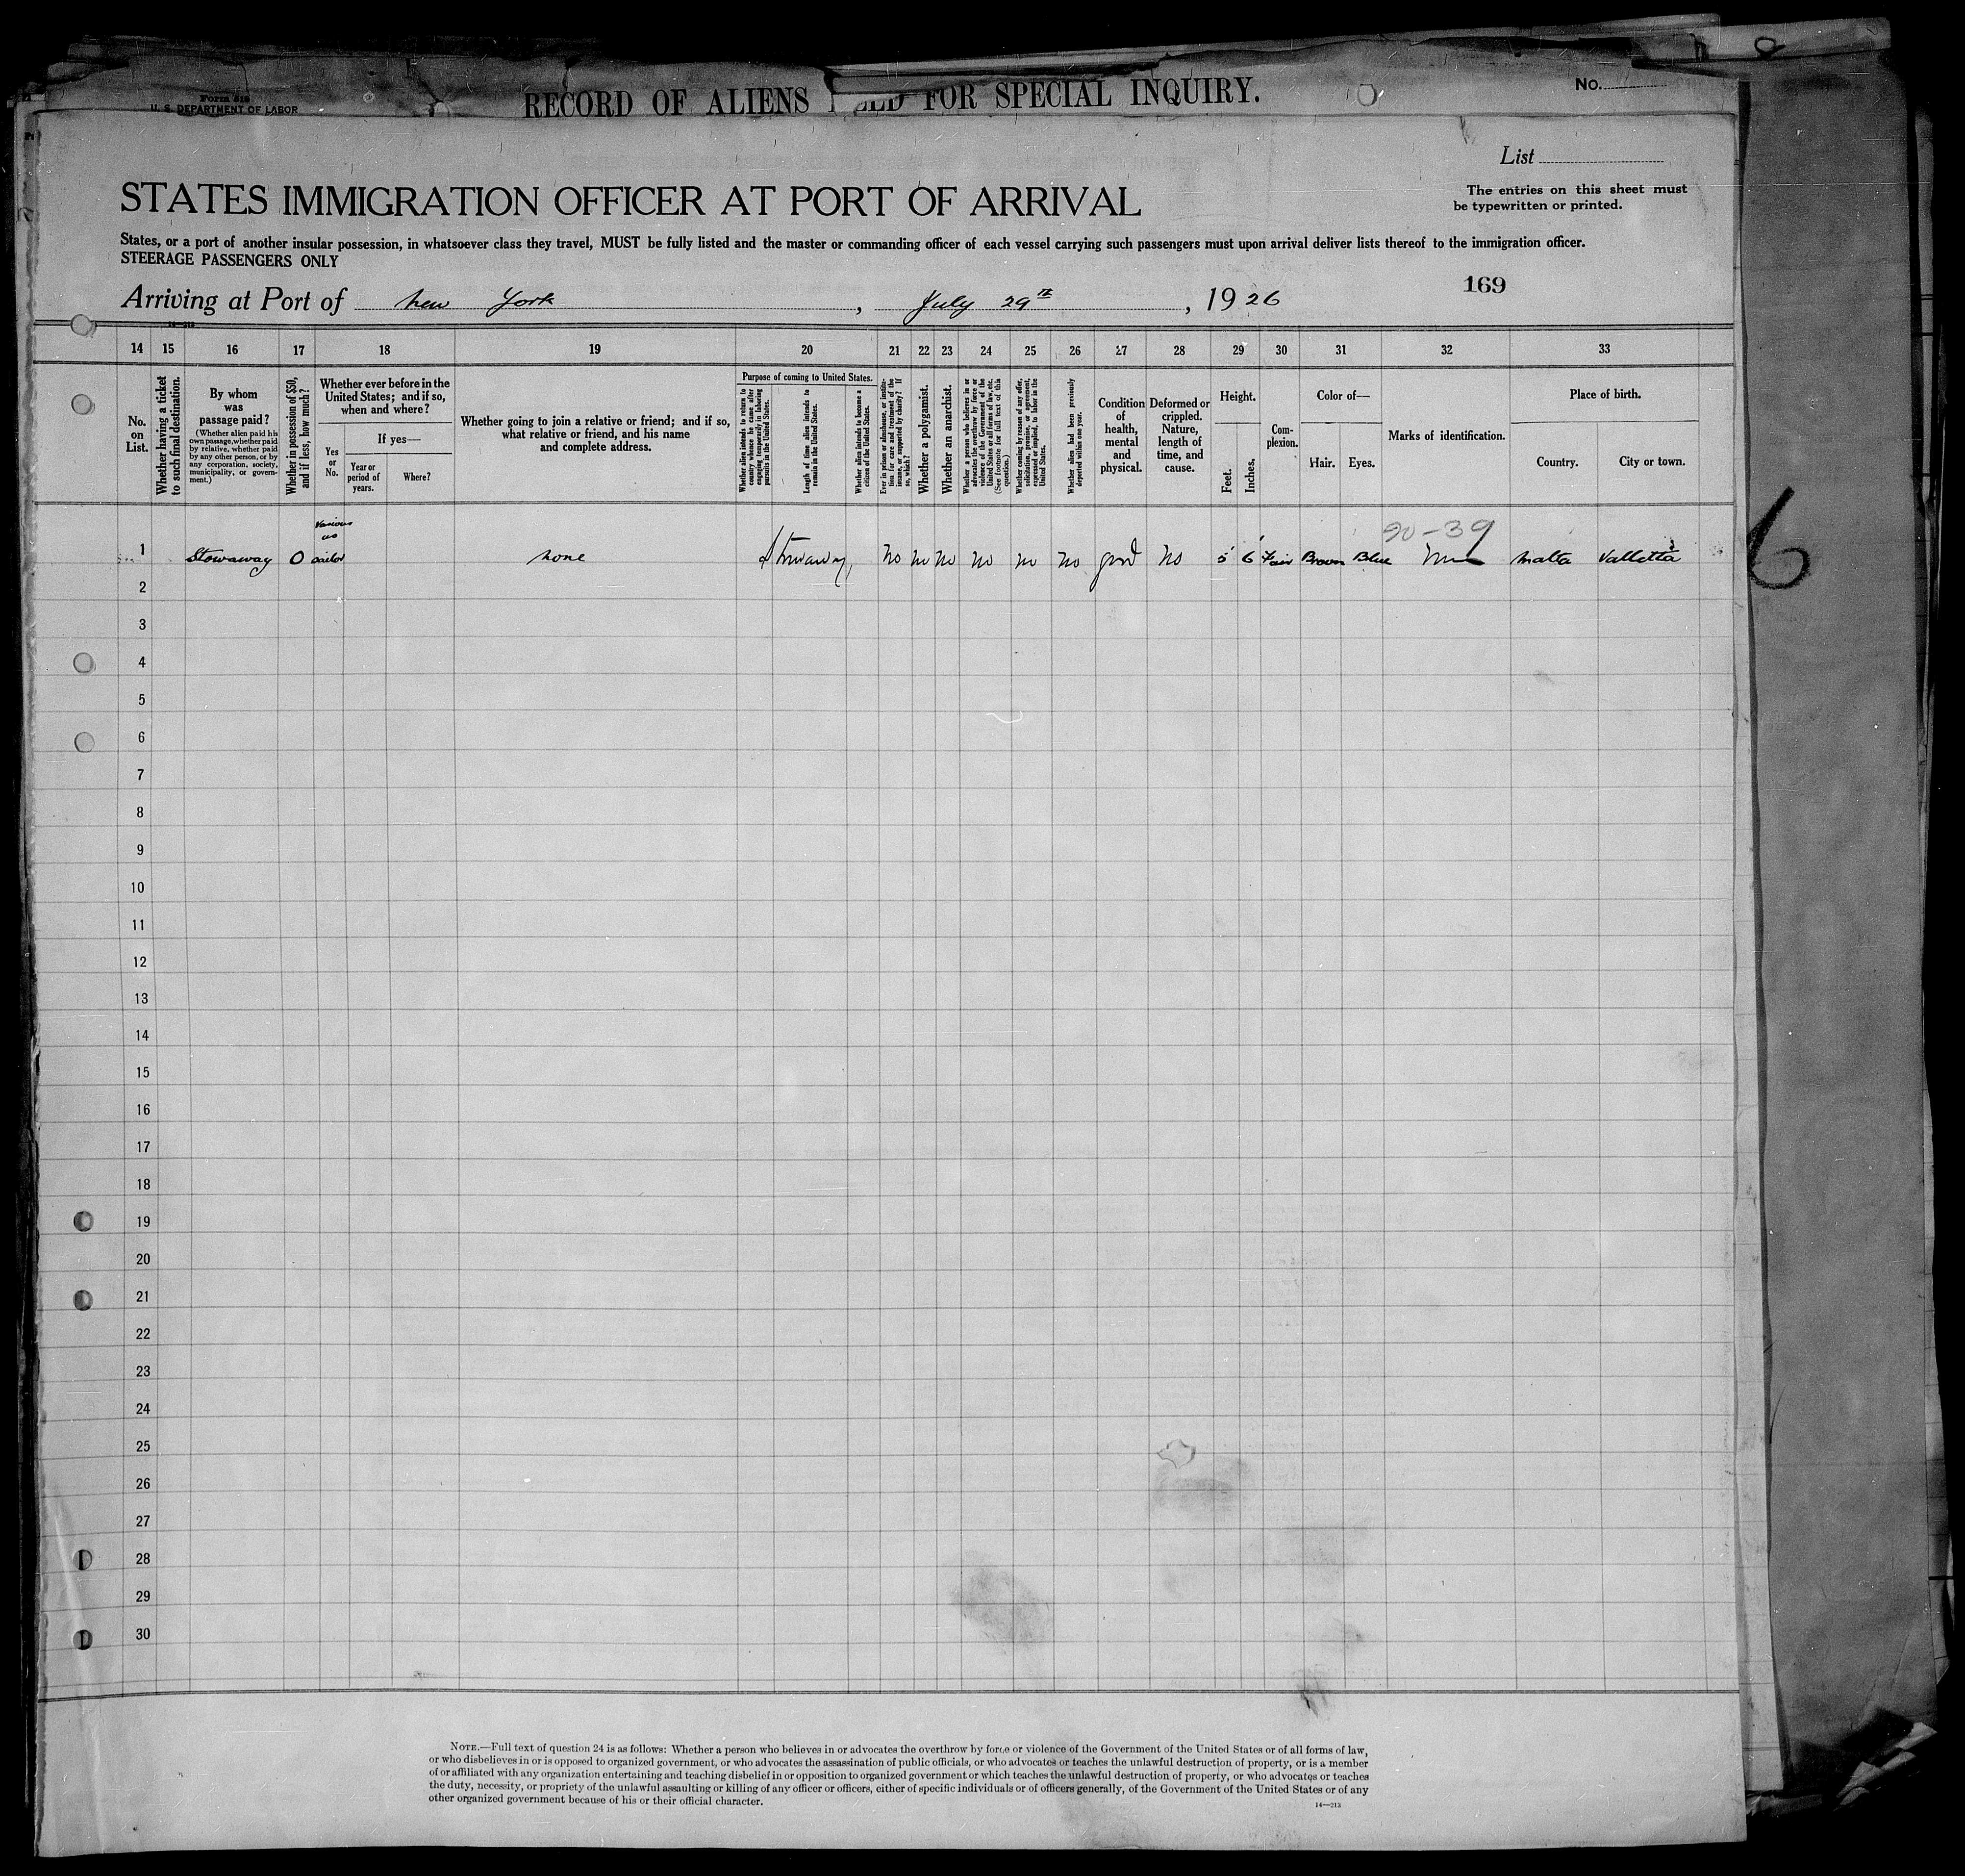 Form 518
U. S. DEPARTMENT OF LABOR
RECORD OF ALIENS HELD FOR SPECIAL INQUIRY.
No.
List
STATES IMMIGRATION OFFICER AT PORT OF ARRIVAL
The entries on this sheet must
be typewritten or printed.
States, or a port of another insular possession, in whatsoever class they travel, MUST be fully listed and the master or commanding officer of each vessel carrying such passengers must upon arrival deliver lists thereof to the immigration officer.
STEERAGE PASSENGERS ONLY
169
Arriving at Port of New York, July 29th, 1926
14 15 16 17 18 19 20 21 22 23 24 25 26 27 28 29 30 31 32 33
No. on List.
Whether having a ticket to such final destination.
By whom was passage paid?
(Whether alien paid his own passage, whether paid by relative, whether paid by any other person, or by any corporation, society, municipality, or government.)
Whether in possession of $50, and if less, how much?
Whether ever before in the United States; and if so, when and where?
Yes or No.
If yes—
Year or period of years.
Where?
Whether going to join a relative or friend; and if so, what relative or friend, and his name and complete address.
Purpose of coming to United States.
Whether alien intends to return to country whence he came after engaging temporarily in laboring pursuits in the United States.
Length of time alien intends to remain in the United States.
Whether alien intends to become a citizen of the United States.
Ever in prison or almshouse, or institution for care and treatment of the insane, or supported by charity? If so, which?
Whether a polygamist.
Whether an anarchist.
Whether a person who believes in or advocates the overthrow by force or violence of the Government of the United States or all forms of law, etc. (See footnote for full text of this question.)
Whether coming by reason of any offer, solicitation, promise, or agreement, expressed or implied, to labor in the United States.
Whether alien had been previously deported within one year.
Condition of health, mental and physical.
Deformed or crippled. Nature, length of time, and cause.
Height.
Feet.
Inches.
Complexion.
Color of—
Hair.
Eyes.
Marks of identification.
Place of birth.
Country.
City or town.
various
as
20-39
1 Stowaway 0 sailor none Stowaway No No No No No No good No 5' 6' Fair Brown Blue Malta Valletta
6
2
3
4
5
6
7
8
9
10
11
12
13
14
15
16
17
18
19
20
21
22
23
24
25
26
27
28
29
30
NOTE.—Full text of question 24 is as follows: Whether a person who believes in or advocates the overthrow by force or violence of the Government of the United States or of all forms of law,
or who disbelieves in or is opposed to organized government, or who advocates the assassination of public officials, or who advocates or teaches the unlawful destruction of property, or is a member
of or affiliated with any organization entertaining and teaching disbelief in or opposition to organized government or which teaches the unlawful destruction of property, or who advocates or teaches
the duty, necessity, or propriety of the unlawful assaulting or killing of any officer or officers, either of specific individuals or of officers generally, of the Government of the United States or of any
other organized government because of his or their official character.
14—213